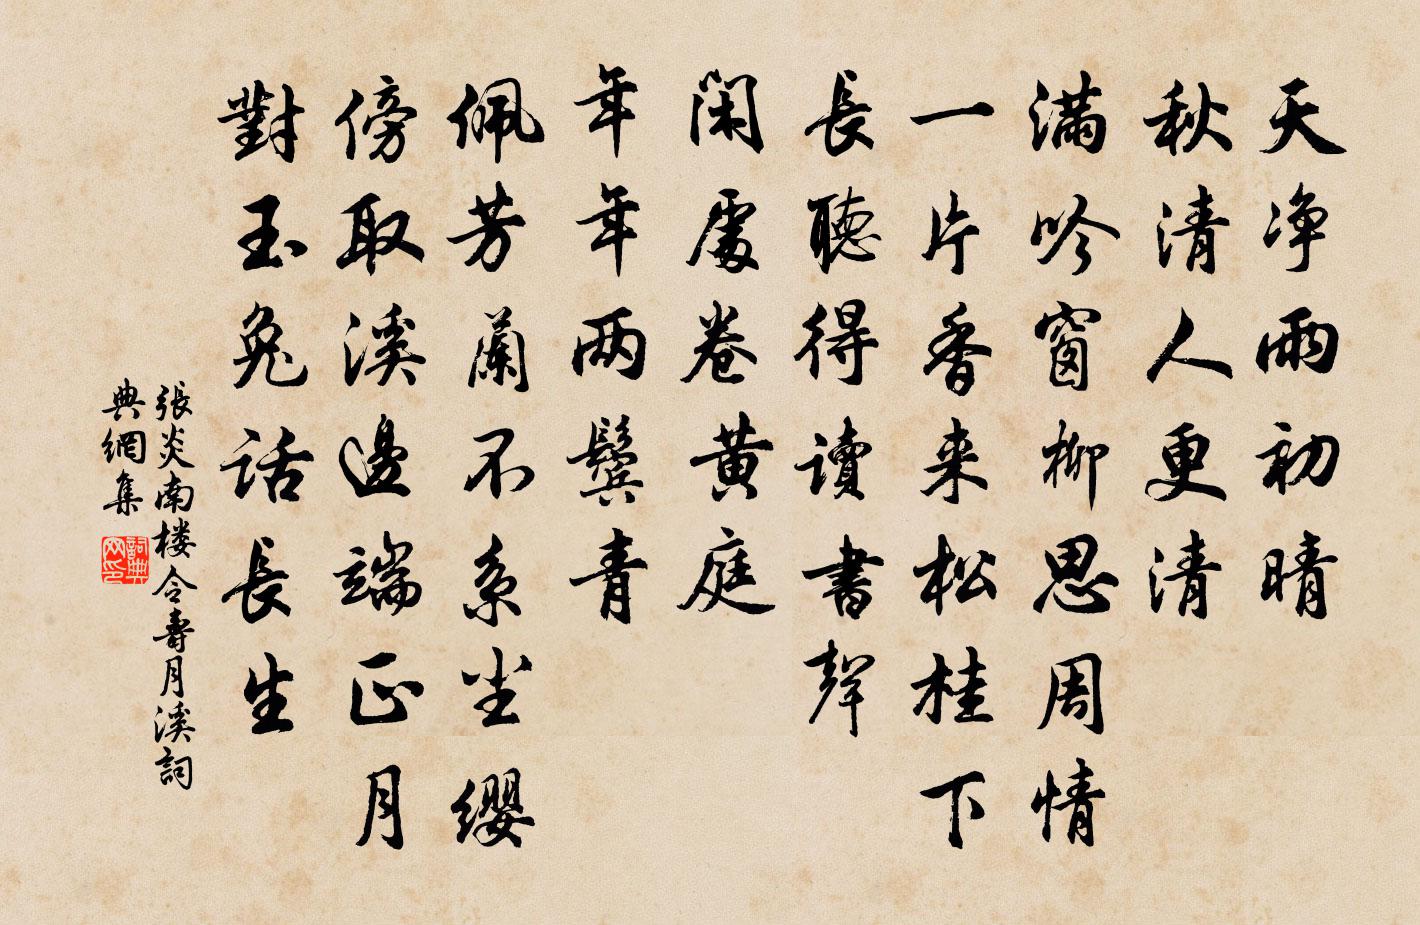 天净雨初晴
秋清人更清
满吟窗柳思周情
一片香来松桂下
長聽得讀書聲
閑處卷黄庭
年年两鬓青
佩芳蘭不系尘缨
傍取溪邊端正月
對玉兔話長生
張炎南楼令壽月溪詞
典網集
詞典网印